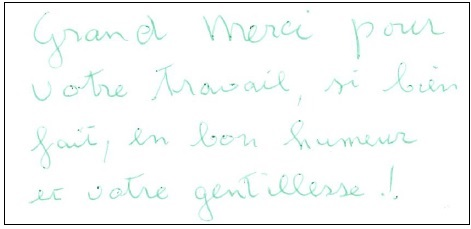 Grand Merci pour
votre travail, si bien
fait, en bon humeur
et votre gentillesse !